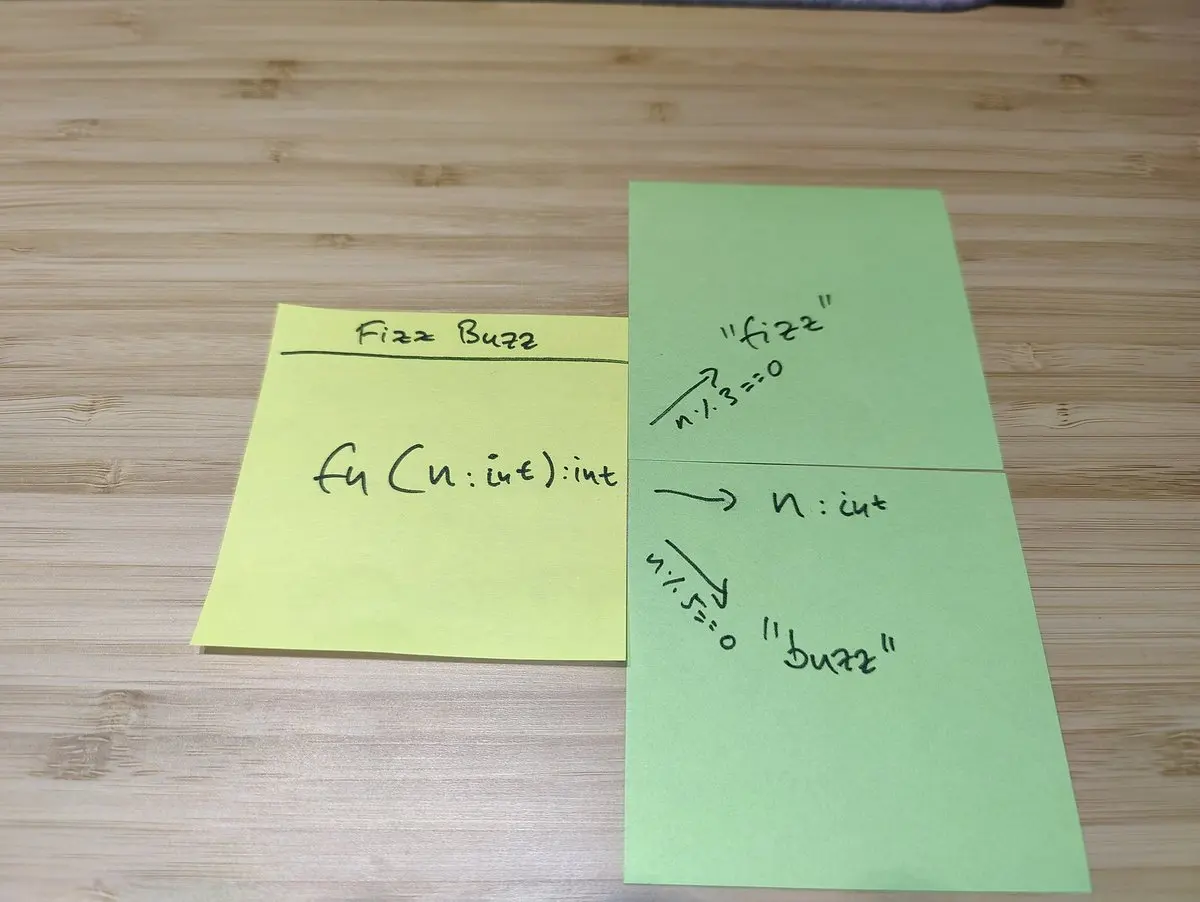 Fizz Buzz
fn (n : int) : int
"fizz"
n % 3 == 0
n : int
n % 5 == 0
"buzz"